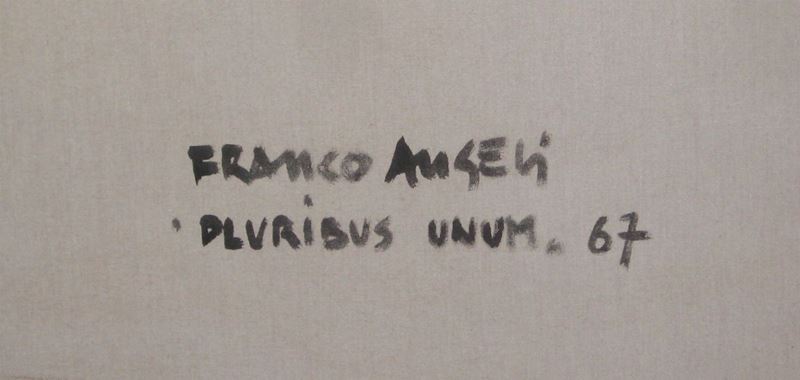 FRANCO ANGELi
PLURiBUS UNUM. 67